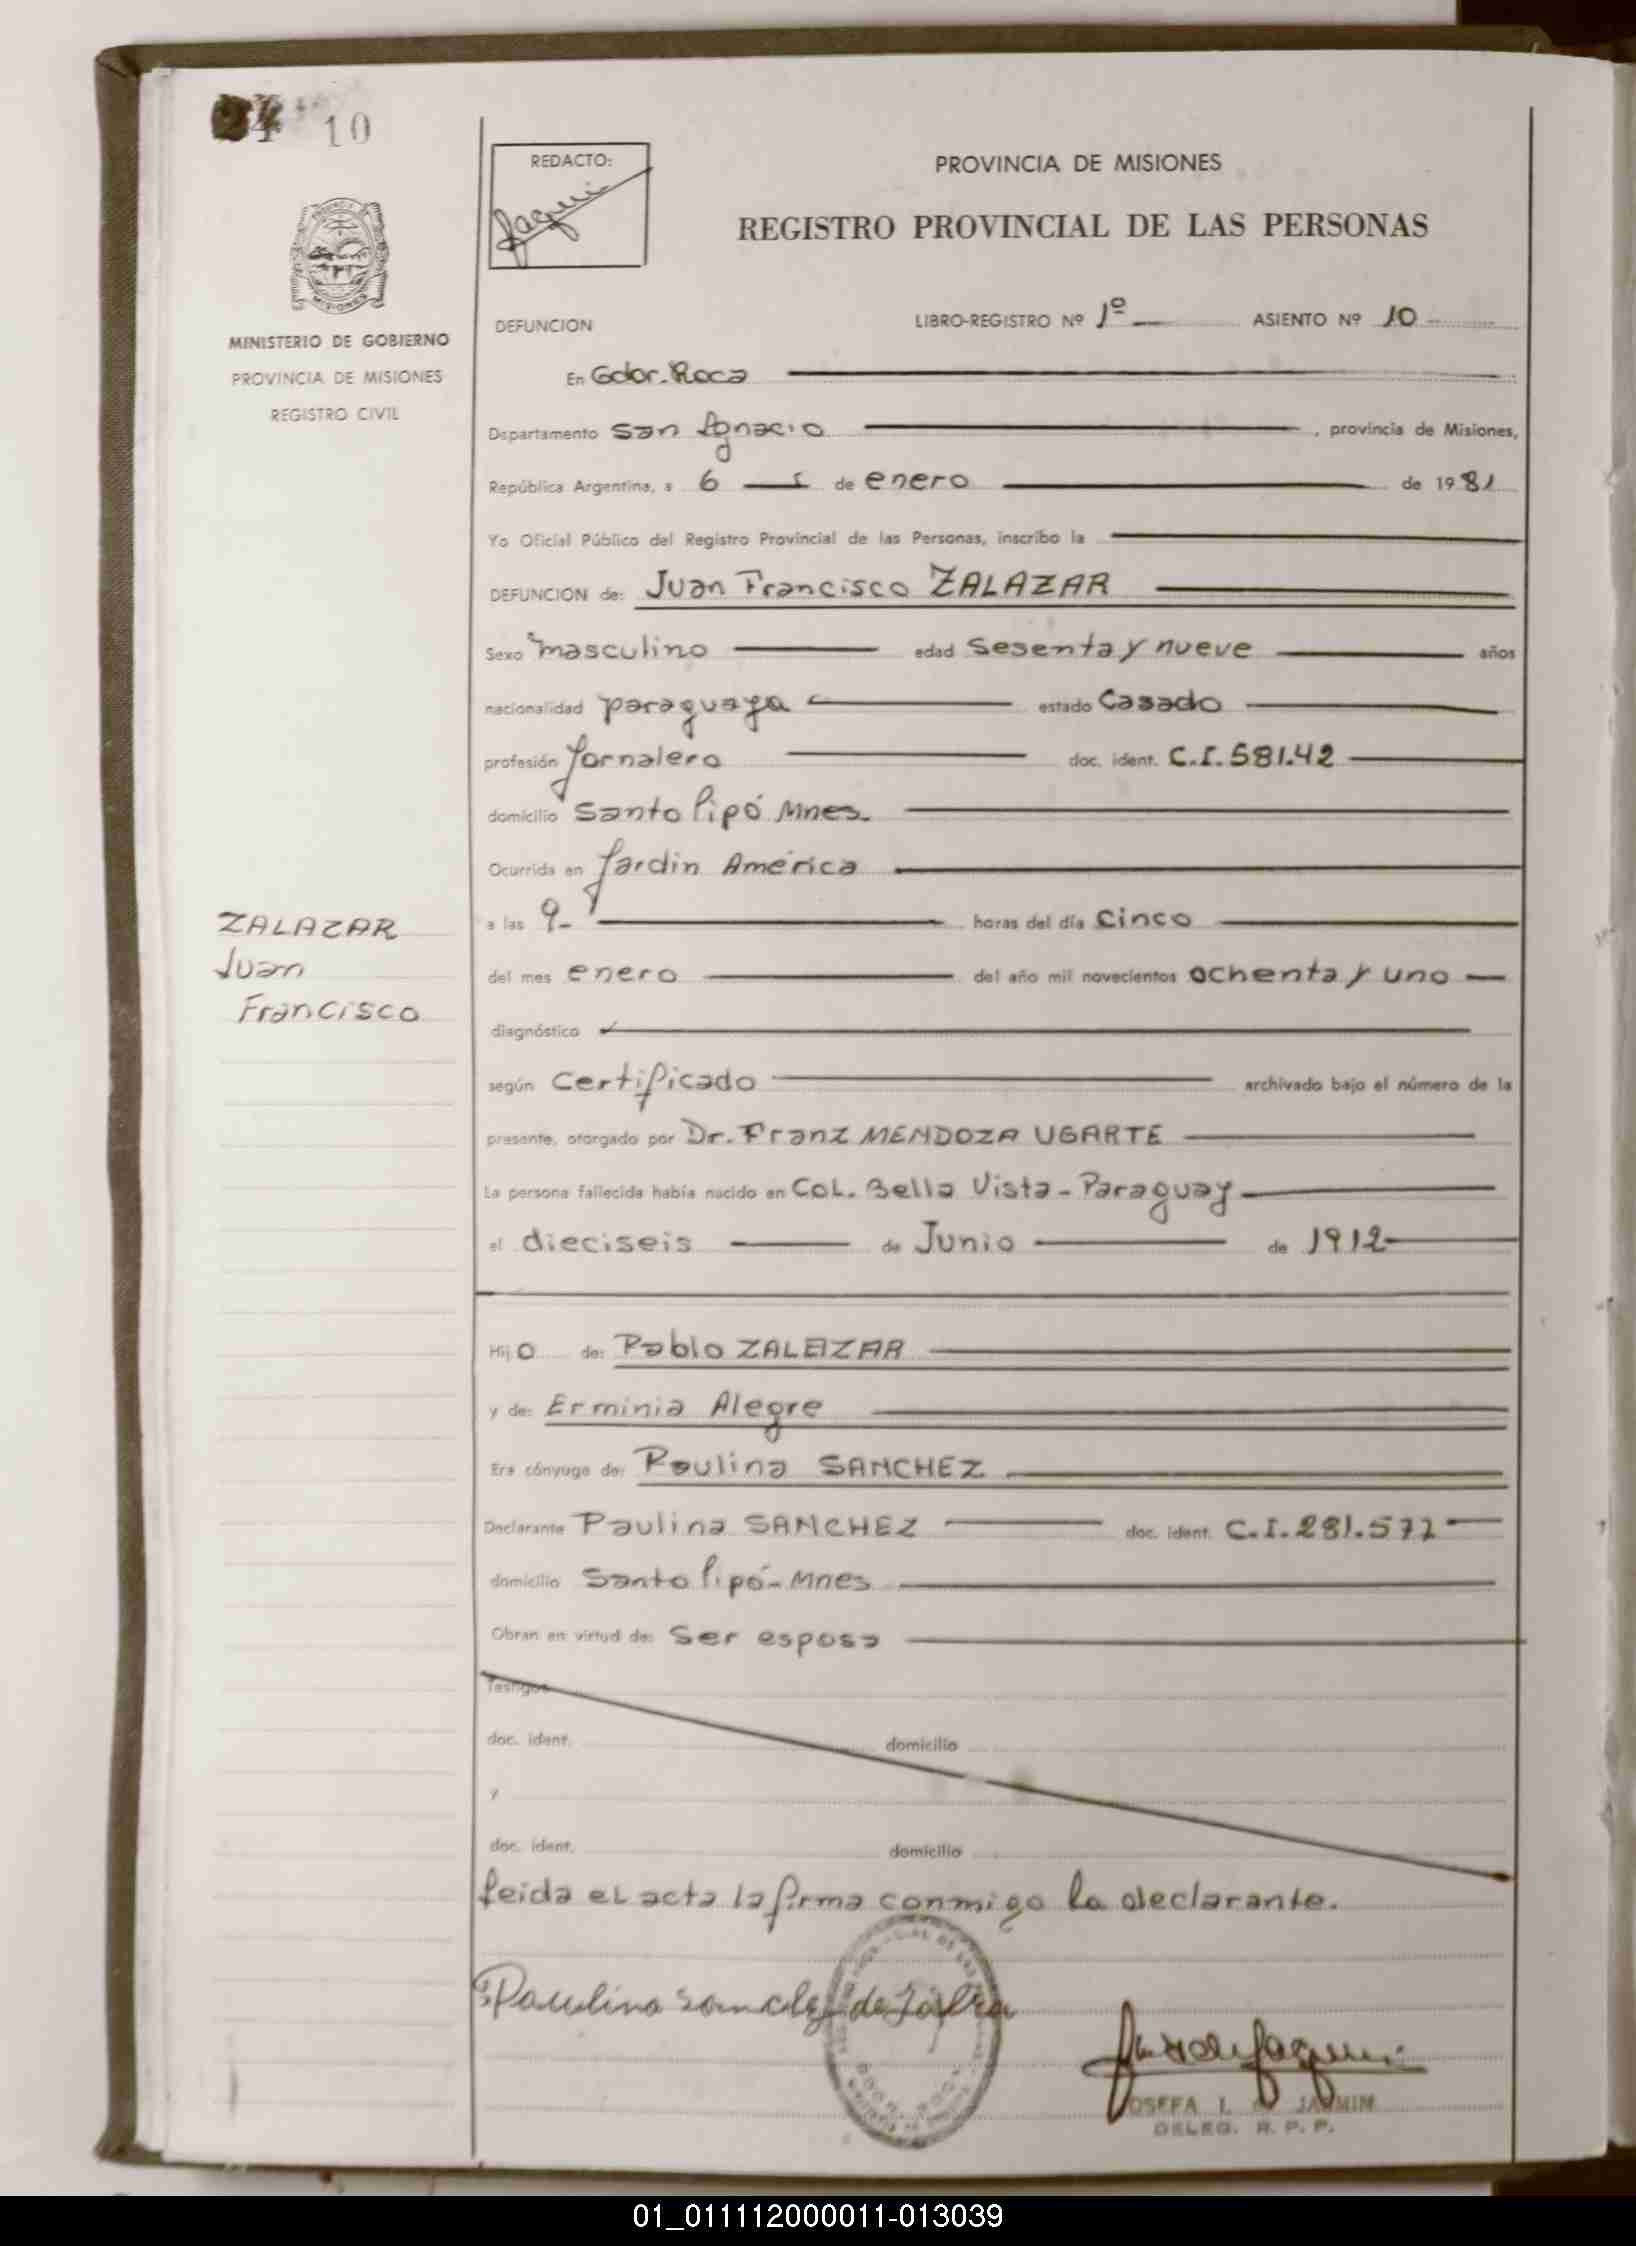 10
REDACTO:
PROVINCIA DE MISIONES
REGISTRO PROVINCIAL DE LAS PERSONAS
MINISTERIO DE GOBIERNO
PROVINCIA DE MISIONES
REGISTRO CIVIL
DEFUNCION LIBRO-REGISTRO Nº 1º ASIENTO Nº 10
En Gdor. Roca
Departamento San Ignacio, provincia de Misiones,
República Argentina, a 6 de enero de 1981
Yo Oficial Público del Registro Provincial de las Personas, inscribo la
DEFUNCION de: Juan Francisco ZALAZAR
Sexo masculino edad sesenta y nueve años
nacionalidad paraguaya estado Casado
profesión Jornalero doc. ident. C.I. 581.42
domicilio Santo Pipó Mnes.
Ocurrida en Jardin América
a las 9- horas del día cinco
ZALAZAR
Juan
Francisco
del mes enero del año mil novecientos ochenta y uno
diagnóstico
según Certificado archivado bajo el número de la
presente, otorgado por Dr. Franz MENDOZA UGARTE
La persona fallecida había nacido en COL. Bella Vista - Paraguay
el dieciseis de Junio de 1912
Hijo de: Pablo ZALAZAR
y de: Erminia Alegre
Era cónyuge de: Paulina SANCHEZ
Declarante Paulina SANCHEZ doc. ident. C.I. 281.577
domicilio Santo Pipó - Mnes
Obran en virtud de: Ser esposa
Testigos
doc. ident. domicilio
y
doc. ident. domicilio
Leida el acta la firma conmigo la declarante.
Paulina Sanchez de
JOSEFA I. JAQMIN
DELEG. R. P. P.
01_011112000011-013039